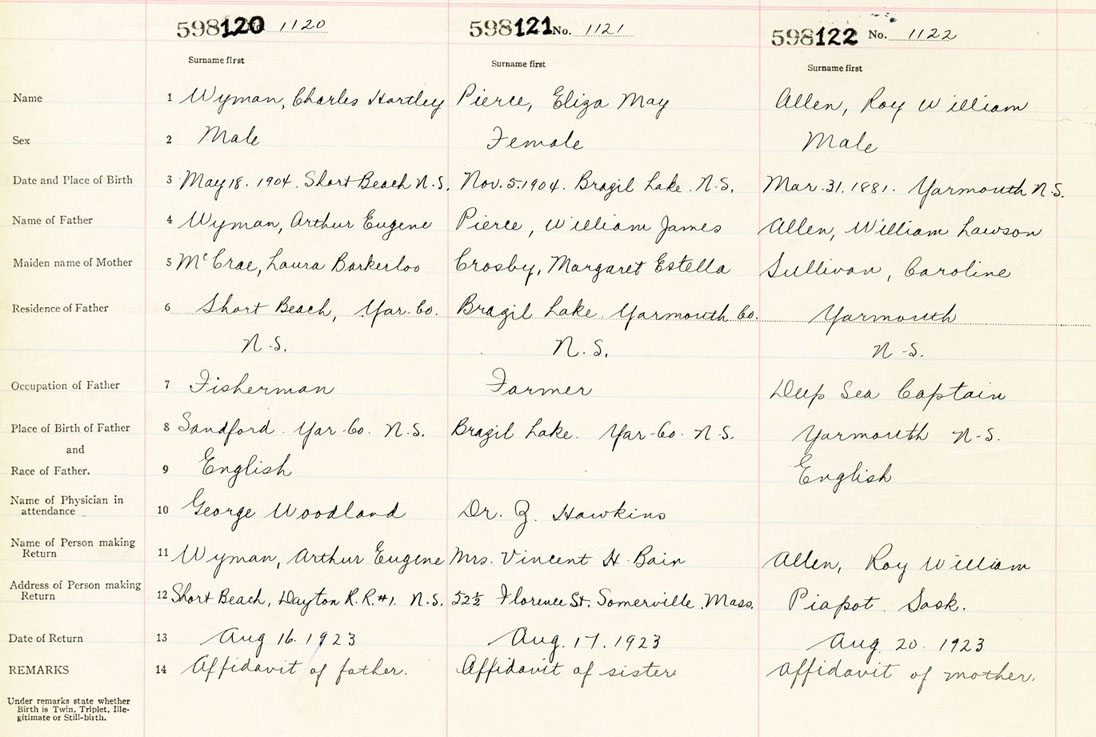 598120 1120 598121 No. 1121 598122 No. 1122
Surname first Surname first Surname first
Name 1 Wyman, Charles Hartley Pierce, Eliza May Allen, Roy William
Sex 2 Male Female Male
Date and Place of Birth 3 May 18. 1904. Short Beach N.S. Nov. 5. 1904. Brazil Lake. N.S. Mar. 31. 1881. Yarmouth N.S.
Name of Father 4 Wyman, Arthur Eugene Pierce, William James Allen, William Lawson
Maiden name of Mother 5 McCrae, Laura Barkerloo Crosby, Margaret Estella Sullivan, Caroline
Residence of Father 6 Short Beach, Yar. Co. Brazil Lake. Yarmouth Co. Yarmouth
N.S. N.S. N-S.
Occupation of Father 7 Fisherman Farmer Deep Sea Captain
Place of Birth of Father 8 Sandford. Yar-Co. N.S. Brazil Lake. Yar-Co. N.S. Yarmouth N-S.
and
Race of Father. 9 English English
Name of Physician in
attendance 10 George Woodland Dr. Z. Hawkins
Name of Person making
Return 11 Wyman, Arthur Eugene Mrs. Vincent H. Bain Allen, Roy William
Address of Person making
Return 12 Short Beach, Dayton R.R.#1. N.S. 52½ Florence St. Somerville. Mass. Piapot. Sask.
Date of Return 13 Aug 16. 1923 Aug. 17. 1923 Aug. 20. 1923
REMARKS 14 Affidavit of father. Affidavit of sister. Affidavit of mother.
Under remarks state whether
Birth is Twin, Triplet, Ille-
gitimate or Still-birth.